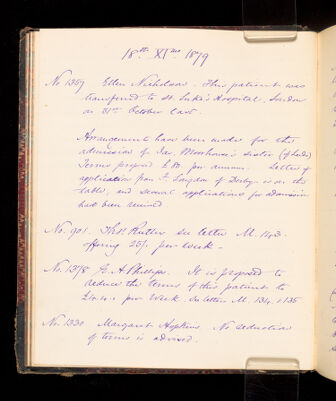 18th XImo 1879
No 1359 Ellen Nicholson. This patient was
transferred to St. Luke's Hospital, London
on 31st October last.
Arrangements have been made for the
admission of Dr. Moorhouse's sister (of Leeds)
Terms proposed £80 per annum. Letter of
application from F. Langdon of Derby is on the
table, and several applications for admission
had been received
No. 901. Thos. Rutter see letter M. 143.
offering 25/- per week.
No. 1378 G. A. Phillips. It is proposed to
reduce the terms of this patient to
£4.4.- per week. See letter M. 134 & 135
No. 1330 Margaret Hopkins. No reduction
of terms is advised.